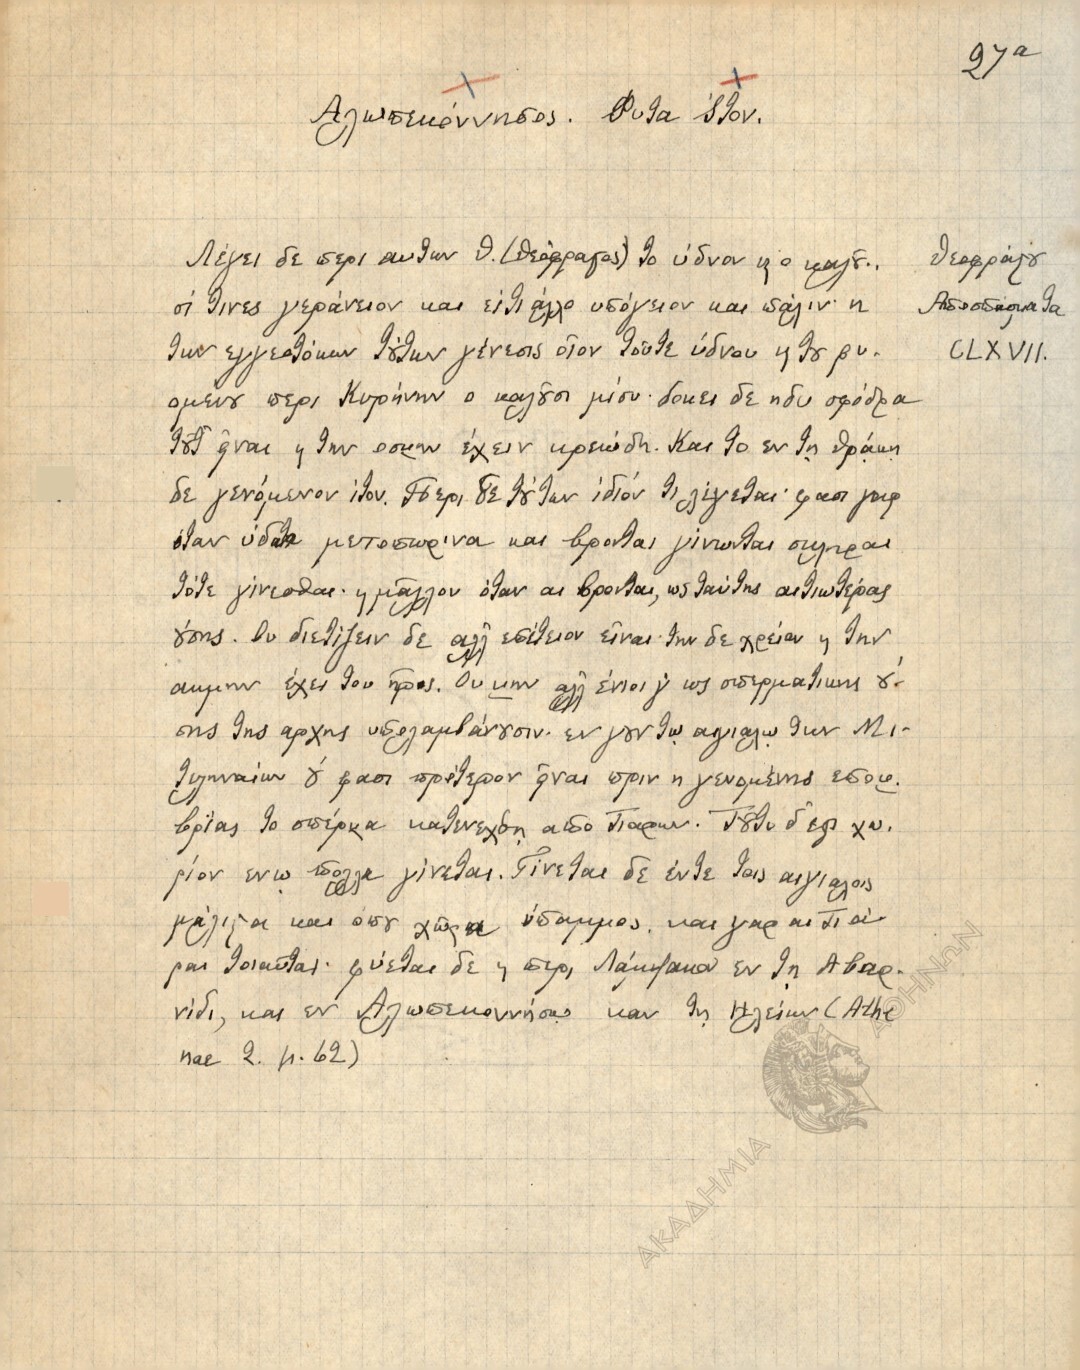 27α
Αλωπεκόννησος. Φυτα ίτον.
Λέγει δε περι αυτων Θ. (Θεόφραστος) το ύδνον κ ο καλού-
σί τινες γεράνειον και εί τι άλλο υπόγειον και πάλιν· η
των εγγεοτόκων τούτων γένεσις οίον τούτε ύδνου κ του φυ-
ομένου περι Κυρήνην ο καλούσι μίσυ· δοκει δε ηδυ σφόδρα
τουτ είναι κ την οσμην έχειν κρεώδη. Και το εν τη Θράκη
δε γενόμενον ίτον. Περι δε τούτων ίδιόν τι λέγεται· φασι γαρ
όταν ύδατα μετοπωρινα και βρονται γίνωνται σκληραι
τότε γίνεσθαι· κ μάλλον όταν αι βρονται, ως ταύτης αιτιωτέρας
ούσης. Ου διετίζειν δε αλλ επέτειον είναι· την δε χρείαν κ την
ακμην έχει του ήρος. Ου μην αλλ ένιοι γ ως σπερματικης ού-
σης της αρχης υπολαμβάνουσιν· εν γουν τω αιγιαλω των Μι-
τυληναίων ού φασι πρότερον είναι πριν η γενομένης επομ-
βρίας το σπέρμα κατενεχθη απο Τιαρων. Τούτο δ εστι χω-
ρίον εν ω πολλα γίνεται. Γίνεται δε έν τε τοις αιγιαλοις
μάλιστα και όπου χώρα ύπαμμος. και γαρ αι Τιά-
ραι τοιαύται· φύεται δε κ περι Λάμψακον εν τη Αβαρ-
νίδι, και εν Αλωπεκοννήσω καν τη Ηλείων (Athe
nae 2. p. 62)
Θεοφράστου
Αποσπάσματα
CLXVII.
ΑΚΑΔΗΜΙΑ ΑΘΗΝΩΝ